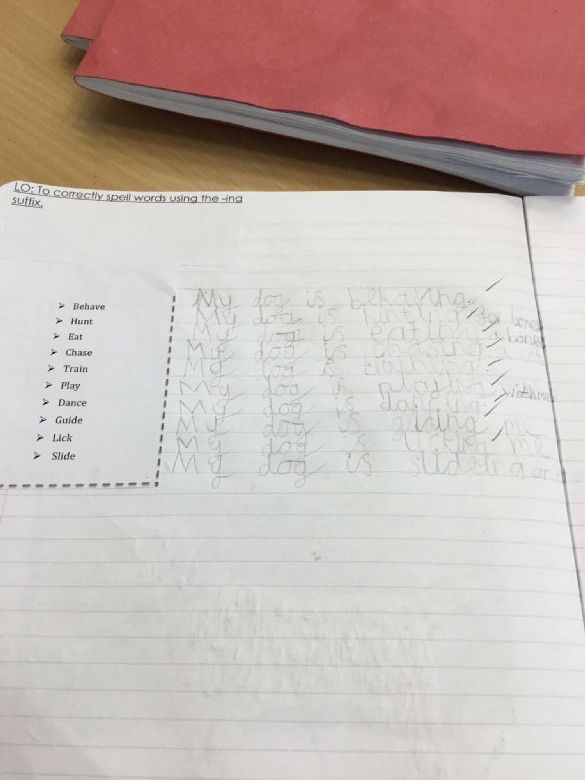 LO: To correctly spell words using the -ing
suffix.
➤ Behave
➤ Hunt
➤ Eat
➤ Chase
➤ Train
➤ Play
➤ Dance
➤ Guide
➤ Lick
➤ Slide
My dog is behaving.
My dog is hunting for bones
My dog is eating a bone
My dog is chasing
My dog is training.
My dog is playing with me
My dog is dancing
My dog is me
My dog is licking me
My dog is slideing on